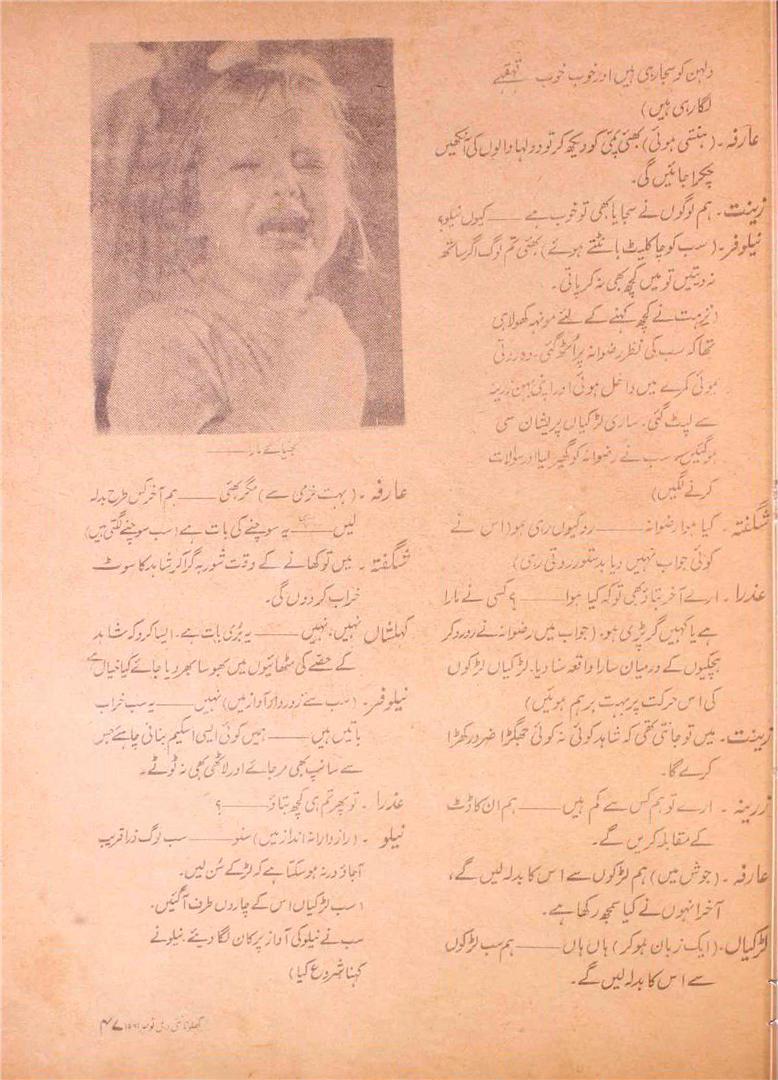 دلہن کو سجا رہی ہیں اور خوب خوب قہقہے
لگا رہی ہیں)
عارفہ ۔ (ہنستی ہوئی) بھئی پمّی کو دیکھ کر تو دولہا والوں کی آنکھیں
چکرا جائیں گی۔
زینت ۔ ہم لوگوں نے سجایا بھی تو خوب ہے —— کیوں نیلو؟
نیلوفر ۔ (سب کو چاکلیٹ بانٹتے ہوئے) بھئی تم لوگ اگر ساتھ
نہ دیتیں تو میں کچھ بھی نہ کر پاتی ۔
(نزہت نے کچھ کہنے کے لئے مونہہ کھولا ہی
تھا کہ سب کی نظر رضوانہ پر اُٹھ گئی۔ وہ روتی
ہوئی کمرے میں داخل ہوئی اور اپنی بہن زرینہ
سے لپٹ گئی۔ ساری لڑکیاں پریشان سی
ہوگئیں۔ سب نے رضوانہ کو گھیر لیا اور سوالات
کرنے لگیں)
شگفتہ ۔ کیا ہوا رضوانہ —— رو کیوں رہی ہو (اس نے
کوئی جواب نہیں دیا بدستور روتی رہی)
عذرا ۔ ارے آخر بتاؤ بھی تو کہ کیا ہوا —— ؟ کسی نے مارا
ہے یا کہیں گر پڑی ہو۔ (جواب میں رضوانہ نے رو رو کر
ہچکیوں کے درمیان سارا واقعہ سنا دیا۔ لڑکیاں لڑکوں
کی اس حرکت پر بہت برہم ہوئیں)
زینت ۔ میں تو جانتی تھی کہ شاہد کوئی نہ کوئی جھگڑا ضرور کھڑا
کرے گا۔
زرینہ ۔ ارے تو ہم کس سے کم ہیں —— ہم ان کا ڈٹ
کے مقابلہ کریں گے۔
عارفہ ۔ (جوش میں) ہم لڑکوں سے اس کا بدلہ لیں گے،
آخر انہوں نے کیا سمجھ رکھا ہے۔
لڑکیاں ۔ (ایک زبان ہو کر) ہاں ہاں —— ہم سب لڑکوں
سے اس کا بدلہ لیں گے۔
بھیّا نے مارا ——
عارفہ ۔ (بہت نرمی سے) مگر بھئی —— ہم آخر کس طرح بدلہ
لیں —— یہ سوچنے کی بات ہے (سب سوچنے لگتی ہیں)
شگفتہ ۔ میں تو کھانے کے وقت شوربہ گرا کر شاہد کا سوٹ
خراب کر دوں گی۔
کہکشاں نہیں، نہیں —— یہ بُری بات ہے۔ ایسا کرو کہ شاہد
کے حصّے کی مٹھائیوں میں بھوسا بھر دیا جائے کیا خیال ہے
نیلوفر ۔ (سب سے زوردار آواز میں) نہیں —— یہ سب خراب
باتیں ہیں —— ہمیں کوئی ایسی اسکیم بنانی چاہئے جس
سے سانپ بھی مر جائے اور لاٹھی بھی نہ ٹوٹے۔
عذرا ۔ تو پھر تم ہی کچھ بتاؤ —— ؟
نیلو ۔ (رازدارانہ انداز میں) سنو —— سب لوگ ذرا قریب
آجاؤ ورنہ ہو سکتا ہے کہ لڑکے سُن لیں۔
(سب لڑکیاں اس کے چاروں طرف آگئیں۔
سب نے نیلو کی آواز پر کان لگا دیئے۔ نیلو نے
کہنا شروع کیا)
کھلونا نئی دہلی نومبر ۴۷